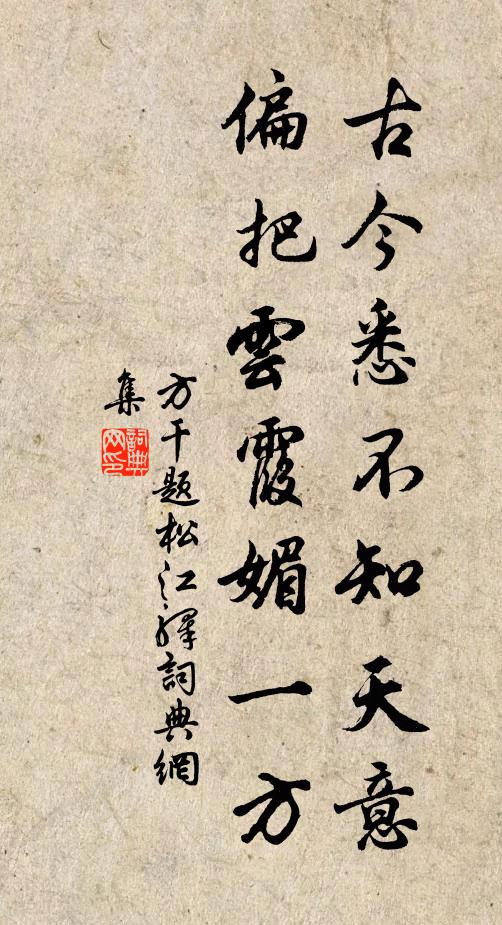 古今悉不知天意
偏把雲霞媚一方
方干题松江驛詞典網
集
詞典网印